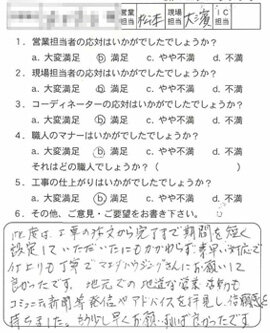 営業担当 松本 現場担当 大濱 IC担当
1．営業担当者の応対はいかがでしたでしょうか？
a. 大変満足 ⓑ 満足 c. やや不満 d. 不満
2．現場担当者の応対はいかがでしたでしょうか？
a. 大変満足 ⓑ 満足 c. やや不満 d. 不満
3．コーディネーターの応対はいかがでしたでしょうか？
a. 大変満足 ⓑ 満足 c. やや不満 d. 不満
4．職人のマナーはいかがでしたでしょうか？
a. 大変満足 ⓑ 満足 c. やや不満 d. 不満
それはどの職人でしょうか？（ ）
5．工事の仕上がりはいかがでしたでしょうか？
a. 大変満足 ⓑ 満足 c. やや不満 d. 不満
6．その他、ご意見・ご要望をお書き下さい。
此度は、工事の注文から完了まで期間を短く
設定していただいたにもかかわらず素早い対応で
何よりも丁寧でマエダハウジングさんにお願いして
良かったです。地元での地道な営業活動も
コミュニティ新聞等発信やアドバイスを拝見し信頼感を
持ちました。もう少し早くお願いすれば良かったです